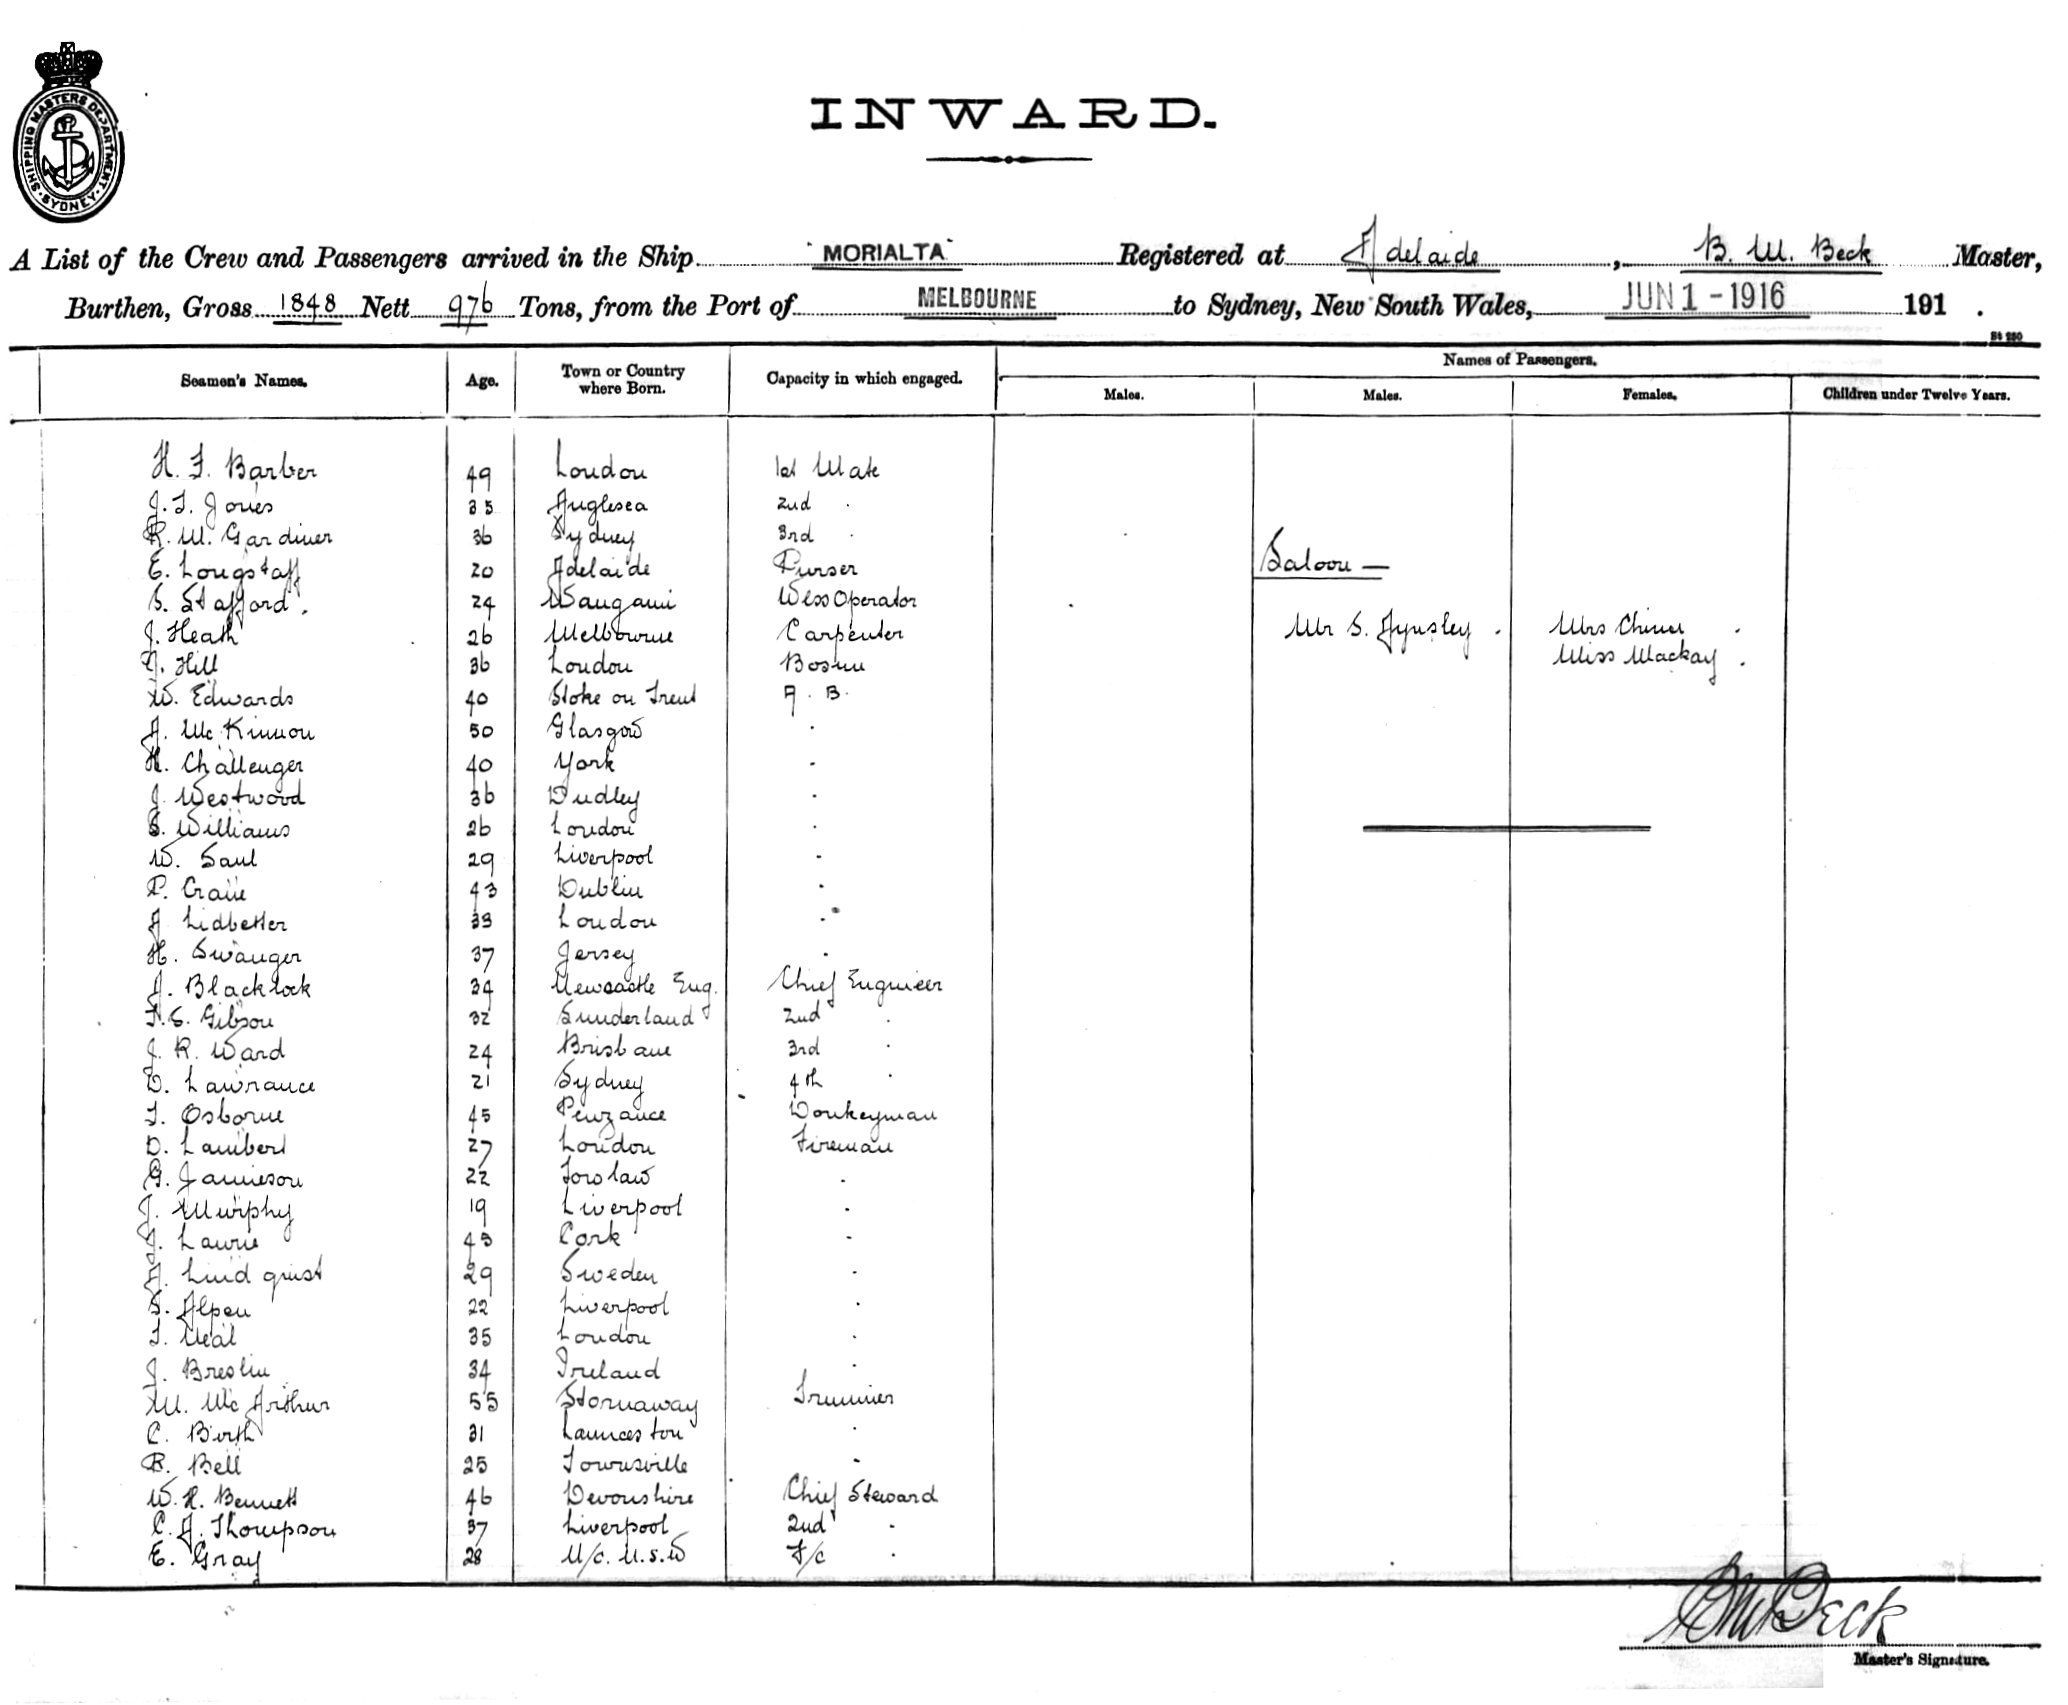 SHIPPING MASTERS DEPARTMENT. SYDNEY.
INWARD.
A List of the Crew and Passengers arrived in the Ship "MORIALTA" Registered at Adelaide, B. M. Beck Master,
Burthen, Gross 1848 Nett 976 Tons, from the Port of MELBOURNE to Sydney, New South Wales, JUN 1 - 1916 191 .
St 250
Names of Passengers.
Seamen's Names. Age. Town or Country where Born. Capacity in which engaged. Males. Males. Females. Children under Twelve Years.
H. F. Barber 49 London 1st Mate
J. T. Jones 35 Anglesea 2nd "
R. W. Gardiner 36 Sydney 3rd "
E. Longstaff 20 Adelaide Purser
Saloon —
S. Stafford. 24 Wangani Wless Operator
J. Heath 26 Melbourne Carpenter Mr S. Aynsley . Mrs .
J. Hill 36 London Bosun Miss Mackay .
W. Edwards 40 Stoke on Trent A. B.
A. McKinnon 50 Glasgow "
H. Challenger 40 York "
J. Westwood 36 Dudley "
S. Williams 26 London "
W. Saul 29 Liverpool "
P. Craine 43 Dublin "
A Lidbetter 33 London "
H. Swanger 37 Jersey "
J. Blacklock 34 Newcastle Eng. Chief Engineer
T. S. Gibson 32 Sunderland 2nd "
J. R. Ward 24 Brisbane 3rd "
D. Lawrance 21 Sydney 4th "
T. Osborne 45 Penzance Donkeyman
D. Lambert 27 London Fireman
G. Jamieson 22 "
J. Murphy 19 Liverpool "
J. Laurie 43 Cork "
A. Lindquist 29 Sweden "
S. Alpen 22 Liverpool "
T. Neal 35 London "
J. Breslin 34 Ireland "
M. McArthur 55 Stornaway Trimmer
C. Birth 31 Launceston "
B. Bell 25 Townsville "
W. H. Bennett 46 Devonshire Chief Steward
C. A. Thompson 37 Liverpool 2nd "
E. Gray 28 N/c. N.S.W F/c "
B M Beck
Master's Signature.